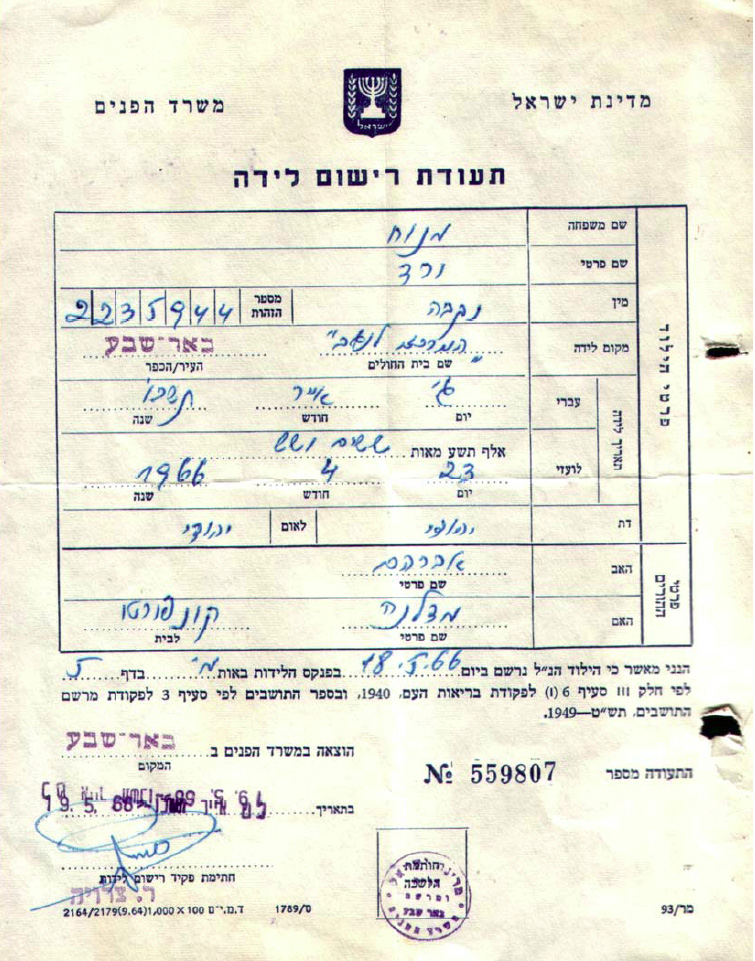 מדינת ישראל
משרד הפנים
תעודת רישום לידה
פרטי הילוד
שם משפחה מנוח
שם פרטי ורד
מין נקבה מספר הזהות 2235944
מקום לידה "המרכזי לנגב" באר־שבע
שם בית החולים העיר/הכפר
תאריך לידה
עברי ג' אייר תשכ"ו
יום חודש שנה
אלף תשע מאות ששים ושש
לועזי 23 4 1966
יום חודש שנה
דת יהודי לאום יהודי
פרטי ההורים
האב אברהם
שם פרטי
האם מדלנה קונפורטו
שם פרטי לבית
הנני מאשר כי הילוד הנ"ל נרשם ביום 18.5.66 בפנקס הלידות באות מ' בדף 5
לפי חלק III סעיף 6 (I) לפקודת בריאות העם, 1940, ובספר התושבים לפי סעיף 3 לפקודת מרשם
התושבים, תש"ט—1949.
הוצאה במשרד הפנים ב באר־שבע
המקום
התעודה מספר 559807 №
בתאריך 19.5.66
חתימת פקיד רישום לידות
חותמת
הלשכה
באר שבע
מר/93
ס/1789 ד.מ.י"ם 100 × 1,000(9.64)2164/2179